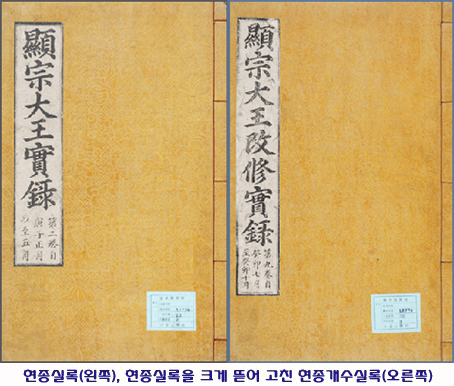 顯宗大王實錄
第二卷自
庚子正月
至五月
顯宗大王改修實錄
第九卷自
癸卯七月
至癸卯十月
현종실록(왼쪽), 현종실록을 크게 뜯어 고친 현종개수실록(오른쪽)